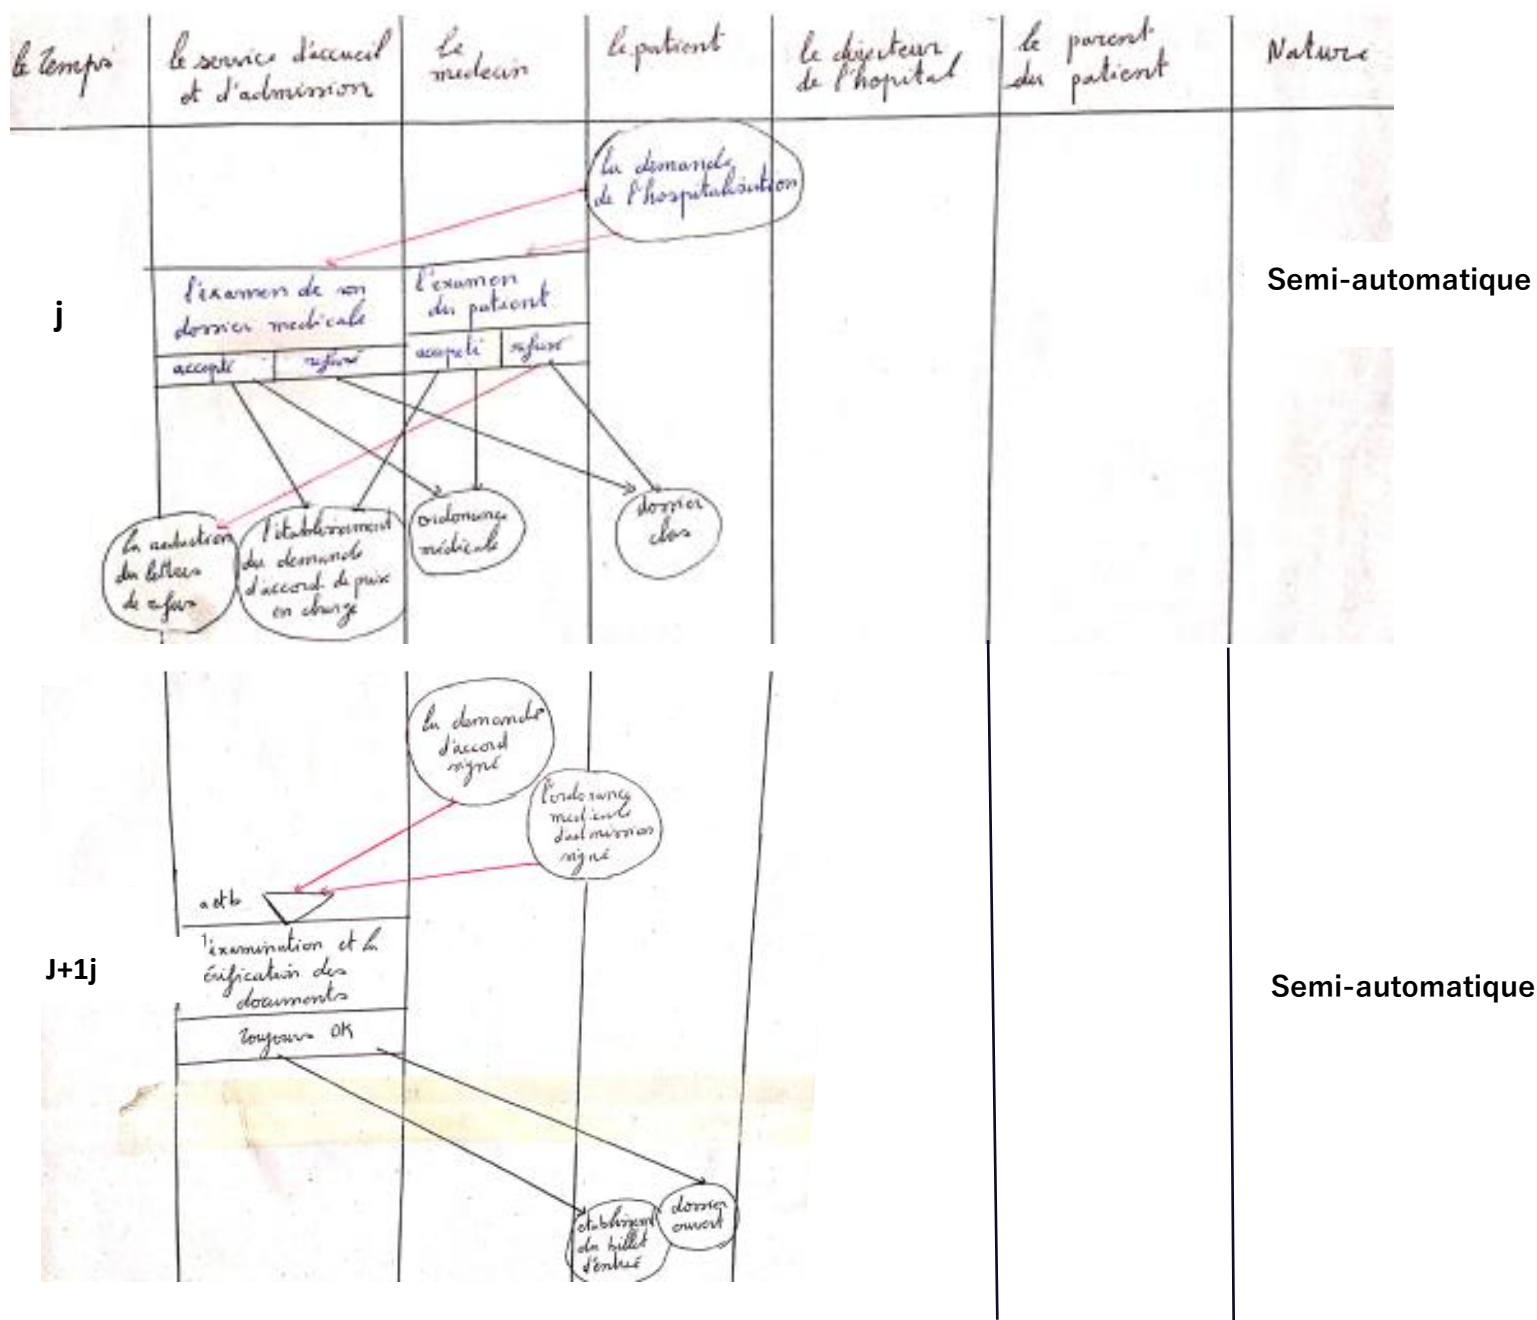 le Temps
le service d'accueil
et d'admission
le
medecin
le patient
le directeur
de l'hopital
le parent
du patient
Nature
la demande
de l'hospitalisation
j
l'éxamen de son
dossier medicale
l'éxamen
du patient
Semi-automatique
accepté
refusé
accpeté
refusé
la redaction
du lettres
de refus
l'établissement
du demande
d'accord de prise
en charge
ordonance
médicale
dossier
clos
la demande
d'accord
signé
l'ordonance
medicale
d'admission
signé
a et b
l'éxamination et la
érification des
documents
J+1j
Semi-automatique
Toujours OK
etablissement
du billet
d'entrée
dossier
ouvert